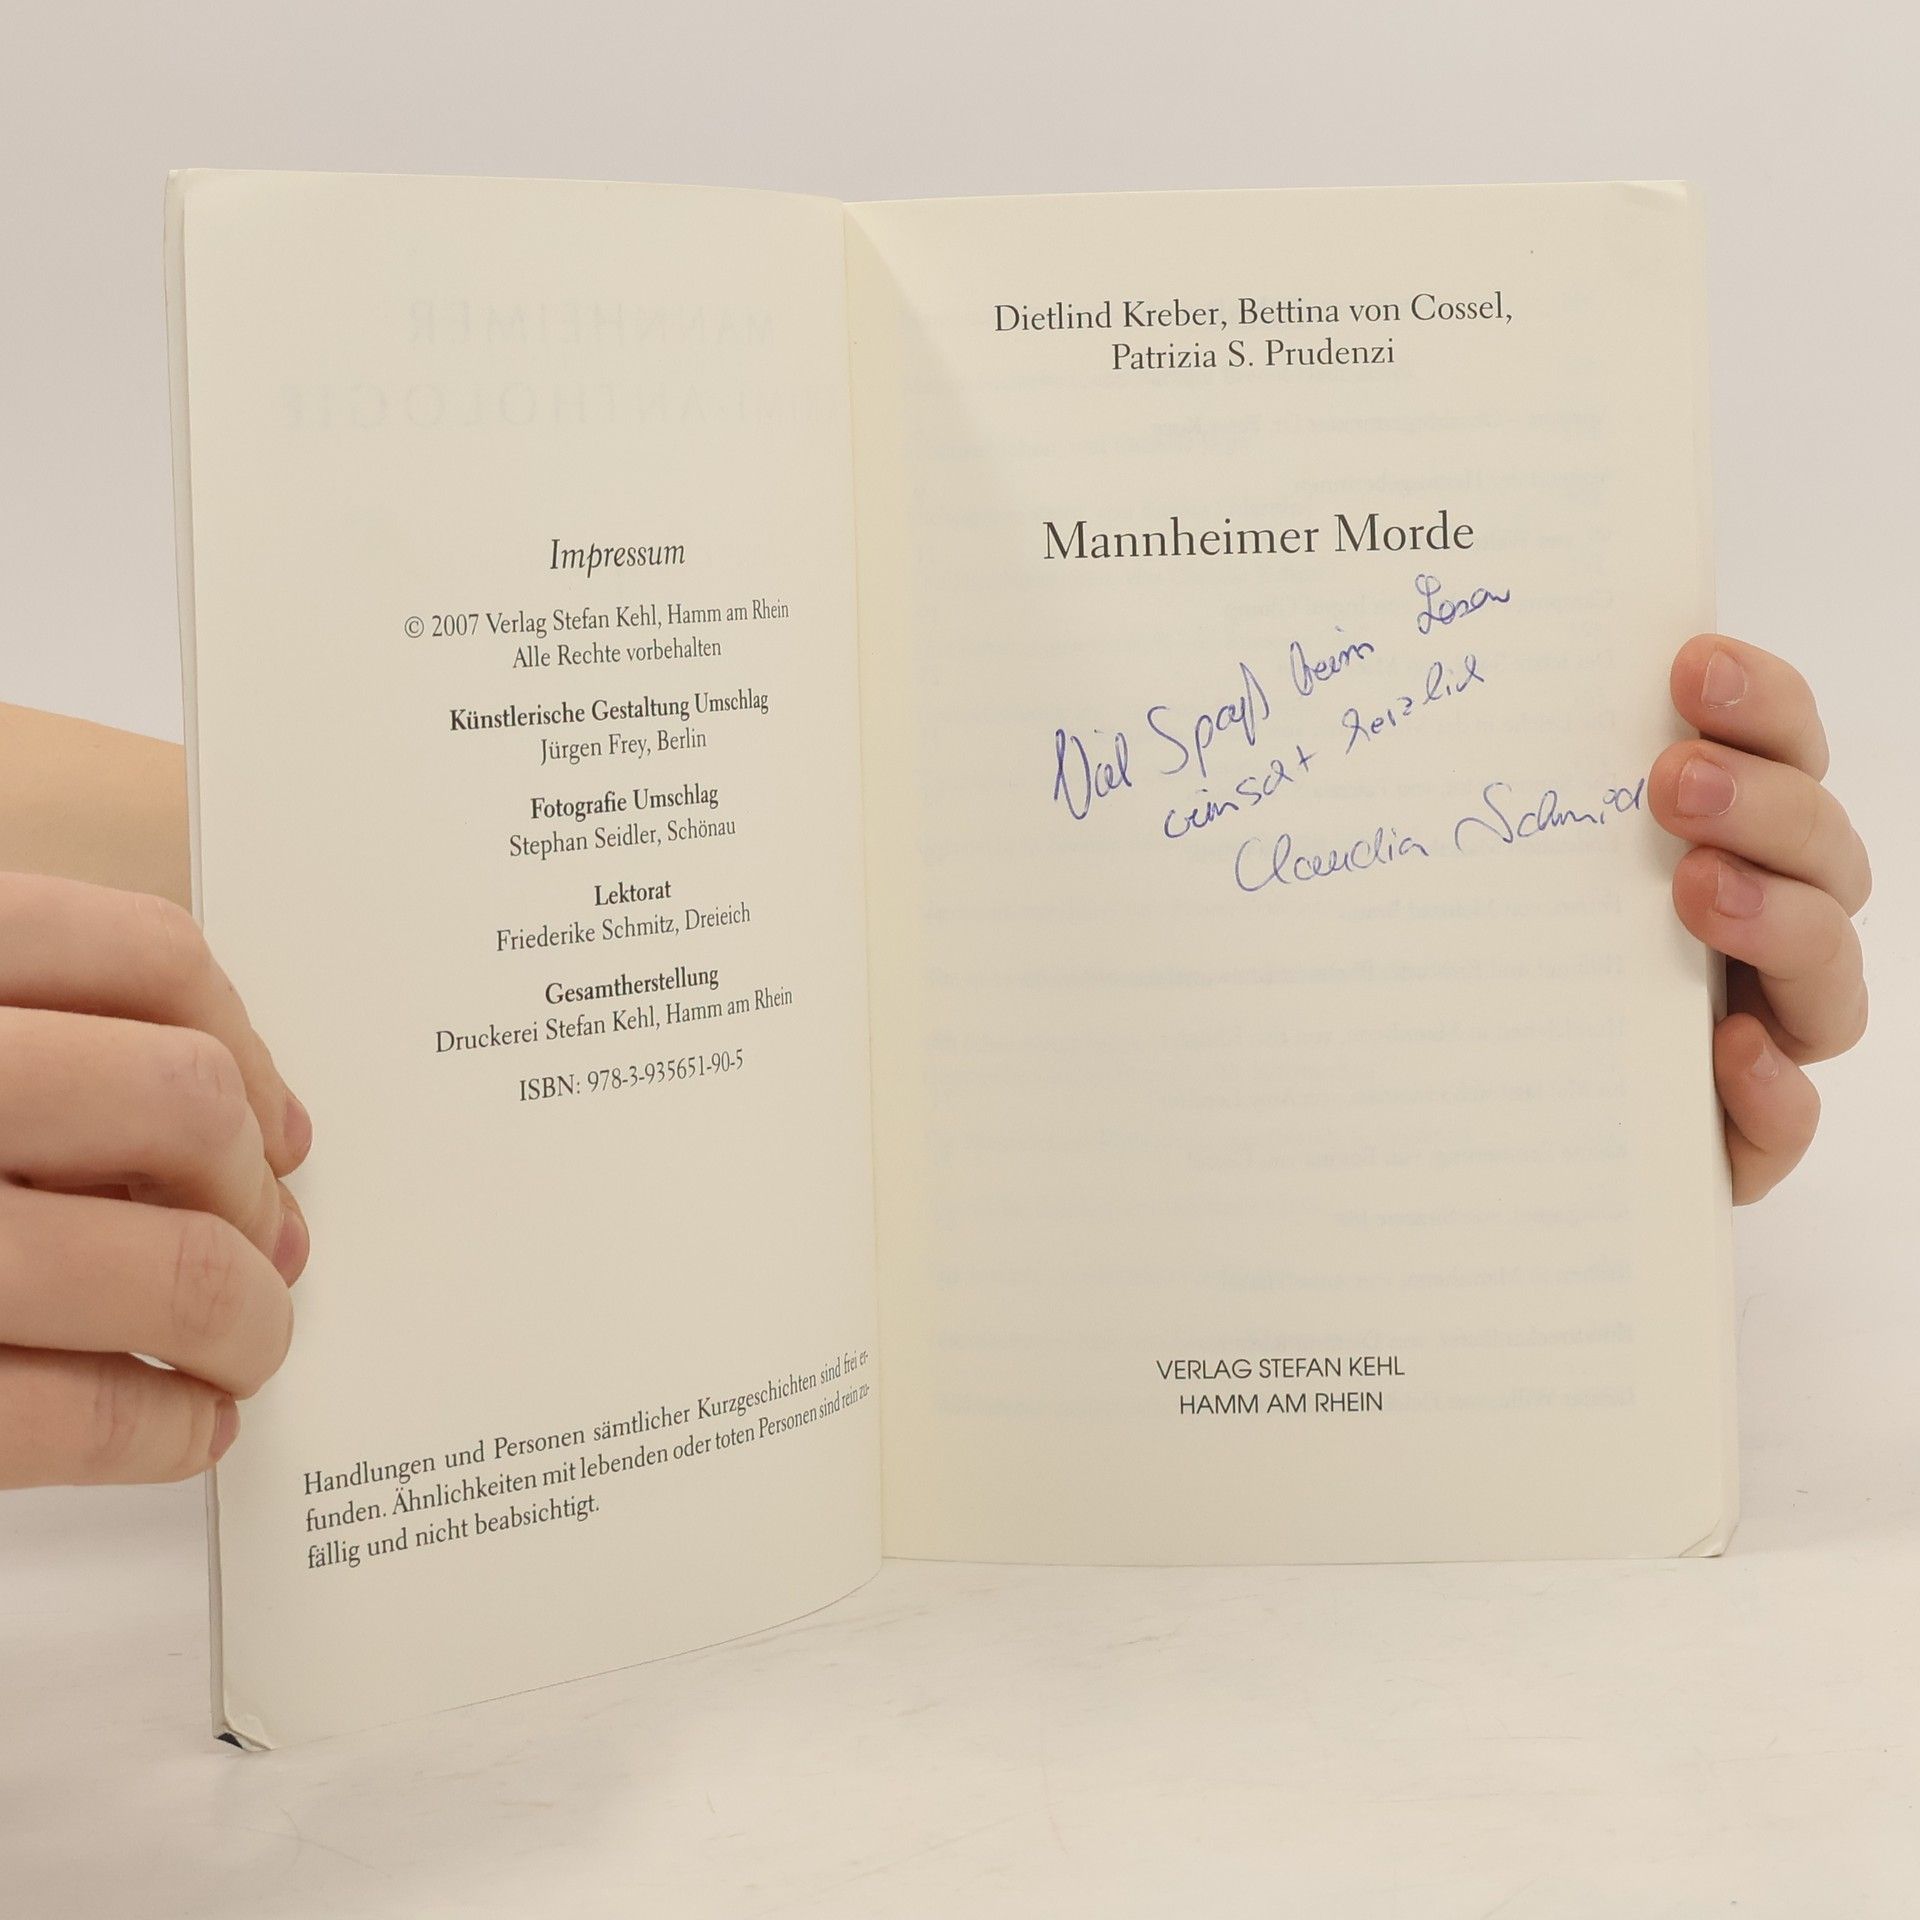 Impressum
© 2007 Verlag Stefan Kehl, Hamm am Rhein
Alle Rechte vorbehalten
Künstlerische Gestaltung Umschlag
Jürgen Frey, Berlin
Fotografie Umschlag
Stephan Seidler, Schönau
Lektorat
Friederike Schmitz, Dreieich
Gesamtherstellung
Druckerei Stefan Kehl, Hamm am Rhein
ISBN: 978-3-935651-90-5
Handlungen und Personen sämtlicher Kurzgeschichten sind frei er-
funden. Ähnlichkeiten mit lebenden oder toten Personen sind rein zu-
fällig und nicht beabsichtigt.
Dietlind Kreber, Bettina von Cossel,
Patrizia S. Prudenzi
Mannheimer Morde
Viel Spaß beim Lesen
wünscht herzlich
Claudia Schmid
VERLAG STEFAN KEHL
HAMM AM RHEIN